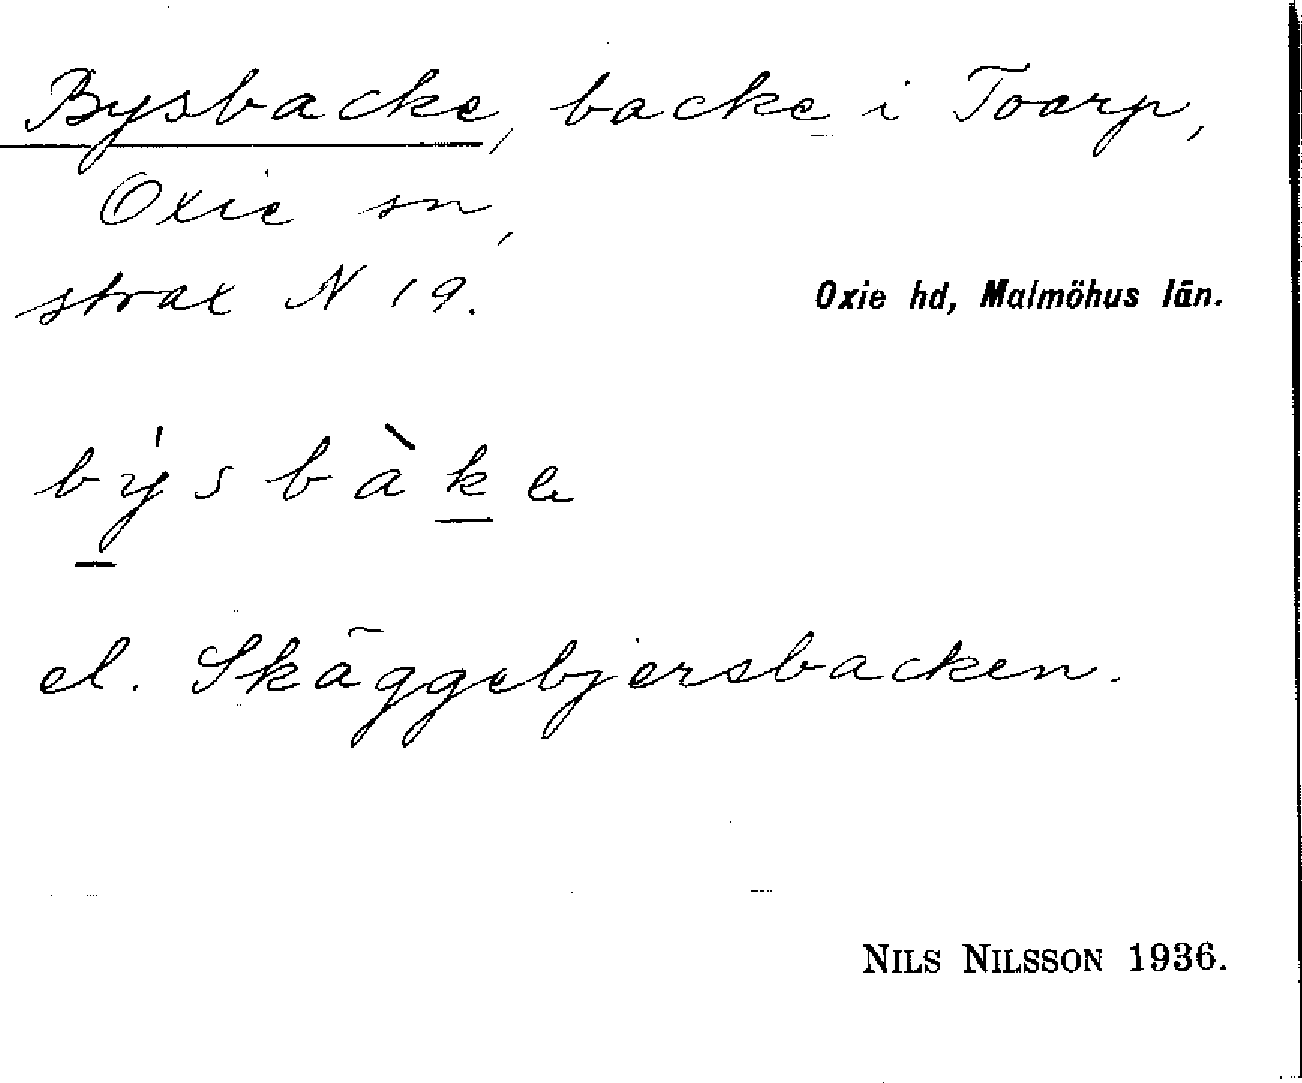 Bysbacke, backe i Toarp,
Oxie sn,
strax N 19.
Oxie hd, Malmöhus län.
býsbàkе
el. Skäggebjersbacken.
NILS NILSSON 1936.